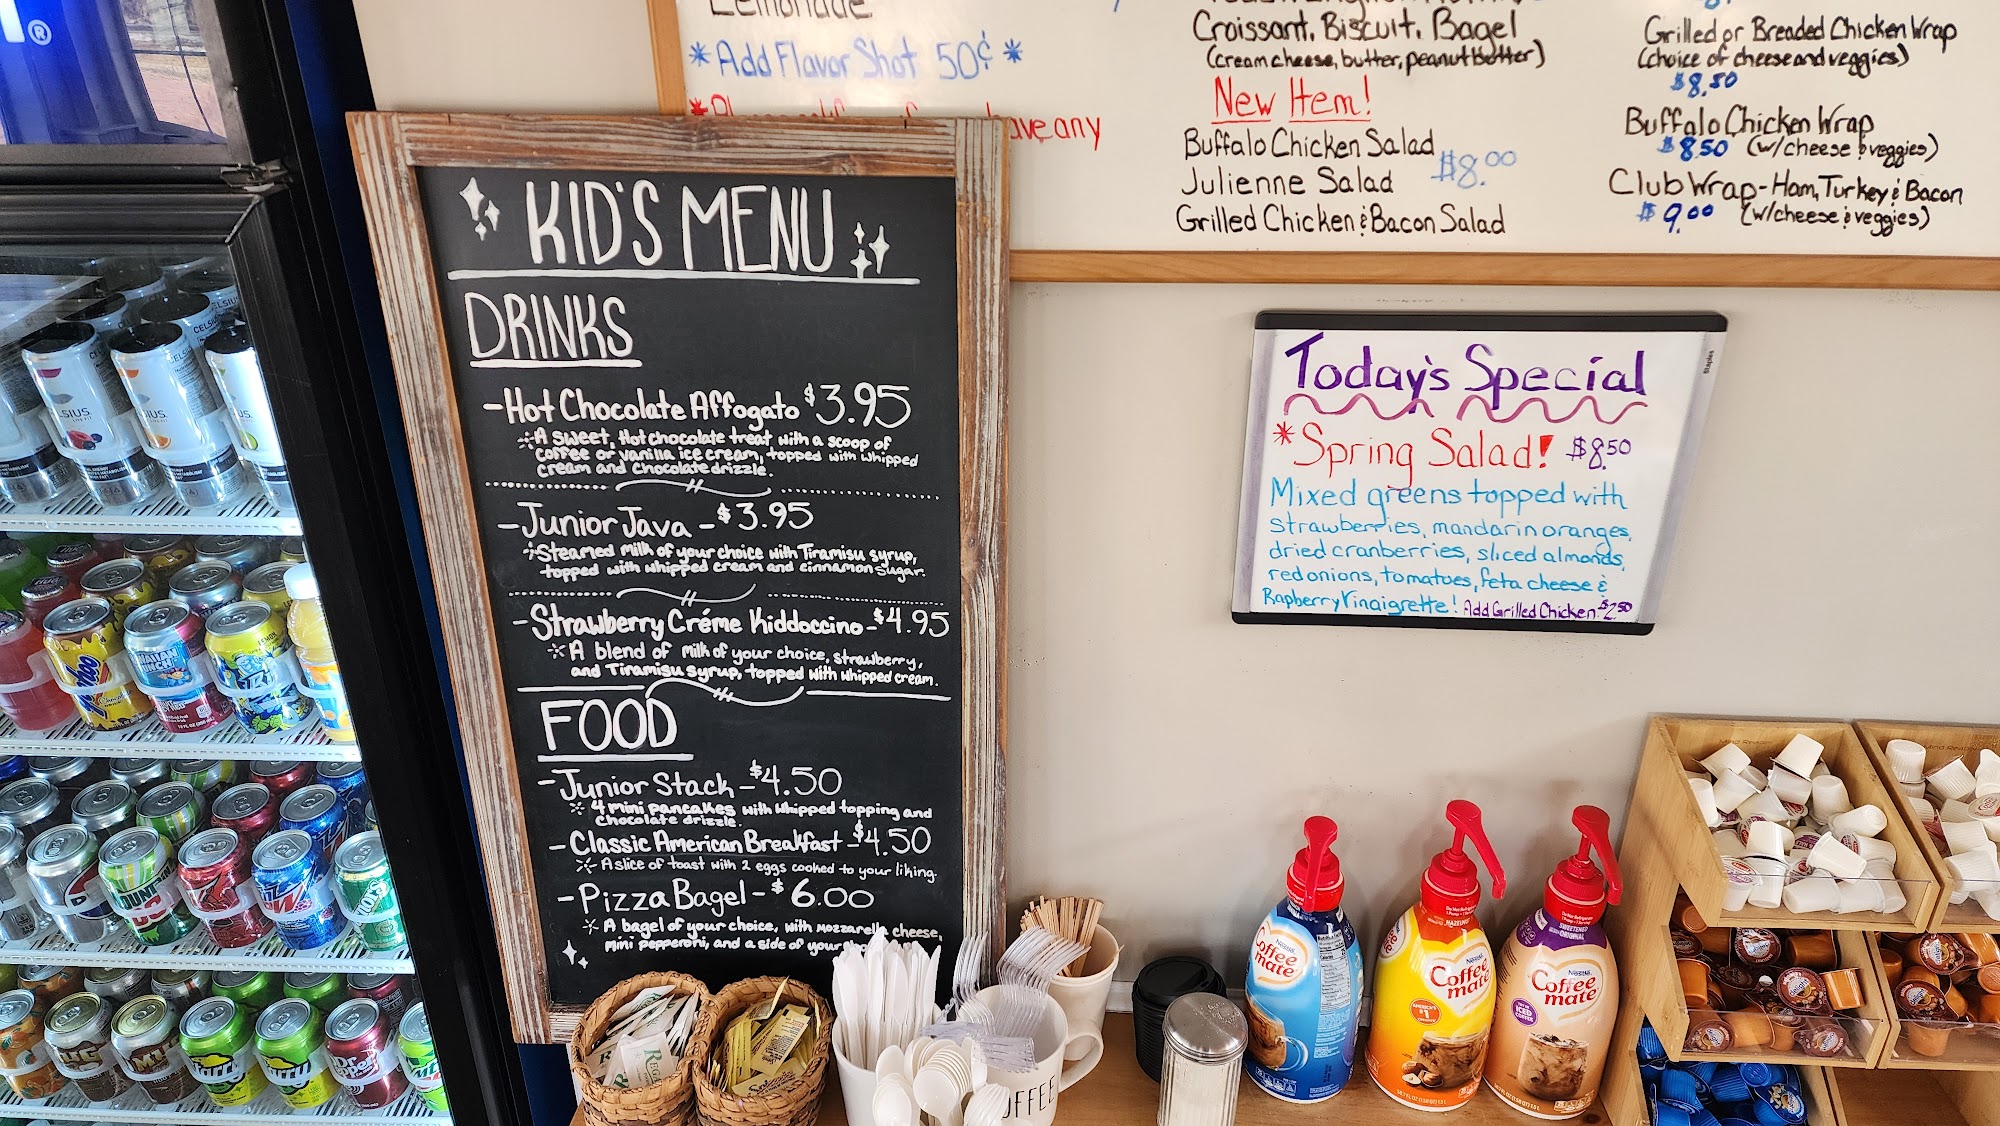 Lemonade
*Add Flavor Shot 50¢*
have any
Croissant, Biscuit, Bagel
(cream cheese, butter, peanut butter)
New Item!
Buffalo Chicken Salad
$8.00
Julienne Salad
Grilled Chicken & Bacon Salad
Grilled or Breaded Chicken Wrap
(choice of cheese and veggies)
$8.50
Buffalo Chicken Wrap
$8.50 (w/cheese & veggies)
Club Wrap - Ham, Turkey & Bacon
$9.00 (w/cheese & veggies)
KID'S MENU
DRINKS
-Hot Chocolate Affogato $3.95
A sweet, Hot chocolate treat with a scoop of
coffee or vanilla ice cream, topped with whipped
cream and chocolate drizzle.
-Junior Java - $3.95
Steamed milk of your choice with Tiramisu syrup,
topped with whipped cream and cinnamon sugar.
-Strawberry Créme Kiddoccino - $4.95
A blend of milk of your choice, strawberry,
and Tiramisu syrup, topped with whipped cream.
FOOD
-Junior Stack - $4.50
4 mini pancakes with whipped topping and
chocolate drizzle.
-Classic American Breakfast - $4.50
A slice of toast with 2 eggs cooked to your liking.
-Pizza Bagel - $6.00
A bagel of your choice, with mozzarella cheese,
mini pepperoni, and a side of your
Today's Special
*Spring Salad! $8.50
Mixed greens topped with
strawberries, mandarin oranges,
dried cranberries, sliced almonds,
red onions, tomatoes, feta cheese &
Rapberry Vinaigrette! Add Grilled Chicken $2.50
Staples
CELSIUS
Nestlé
Coffee mate
Nestlé
Coffee mate
HAZELNUT
Nestlé
Coffee mate
SWEETENED ORIGINAL
COFFEE